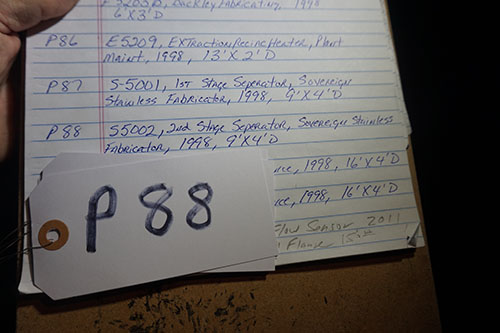 E5205B, Buckley Fabricating, 1998
6'X3'D
P86 E5209, EXTraction Recirc Heater, Plant
Maint, 1998, 13'X2'D
P87 S-5001, 1st Stage Seperator, Sovereign
Stainless Fabricator, 1998, 9'X4'D
P88 S5002, 2nd Stage Seperator, Sovereign Stainless
Fabricator, 1998, 9'X4'D
1998, 16'X4'D
1998, 16'X4'D
Flow Sensor 2011
Flange
P 88